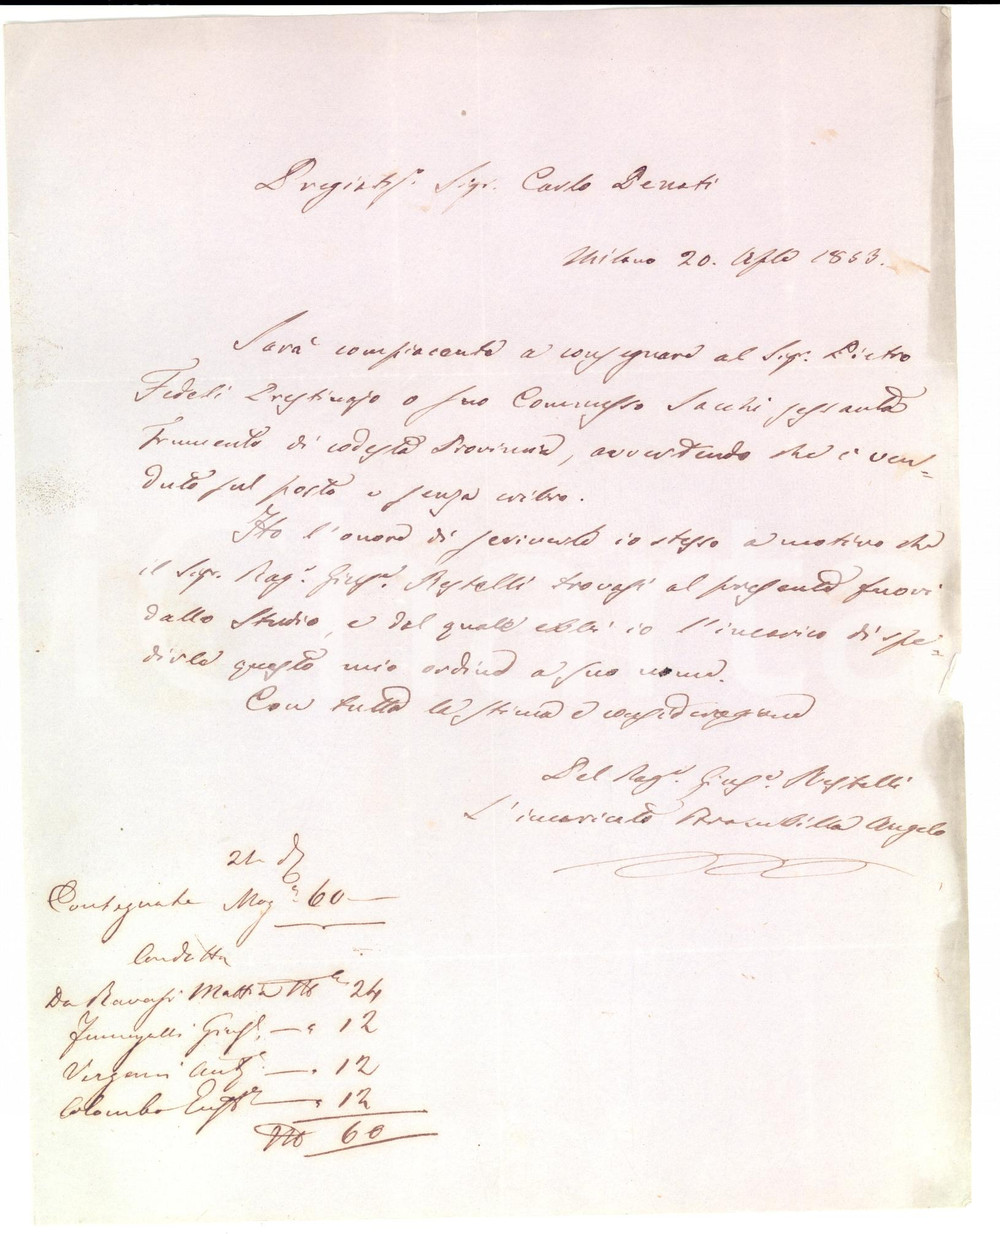 Pregiatis.º Sigr. Carlo Denati
Milano 20. 1853.
Sarà compiacente a consegnare al Sigr. Pietro
Fedeli Prestinajo o suo Commesso Sacchi, sessanta
Frumento di codesta Provincia, avvertendo che è ven=
duto sul posto e senza cribro.
Ho l'onore di scriverle io stesso a motivo che
il Sigr. Rag.e Gius.e Restelli trovasi al presente fuori
dallo Studio, e dal quale ebbi io l'incarico di spe=
dirle questo mio ordine a suo nome.
Con tutta la stima e considerazione
Del Rag.e Gius.e Restelli
L'incaricato Brambilla Angelo
21
Consegnate Mog.a 60
Condotta
Da Ravasi Mattia Ma 24
Fumagalli Gius.e — " 12
Vergani Ant.o — " 12
Colombo — " 12
Ma 60